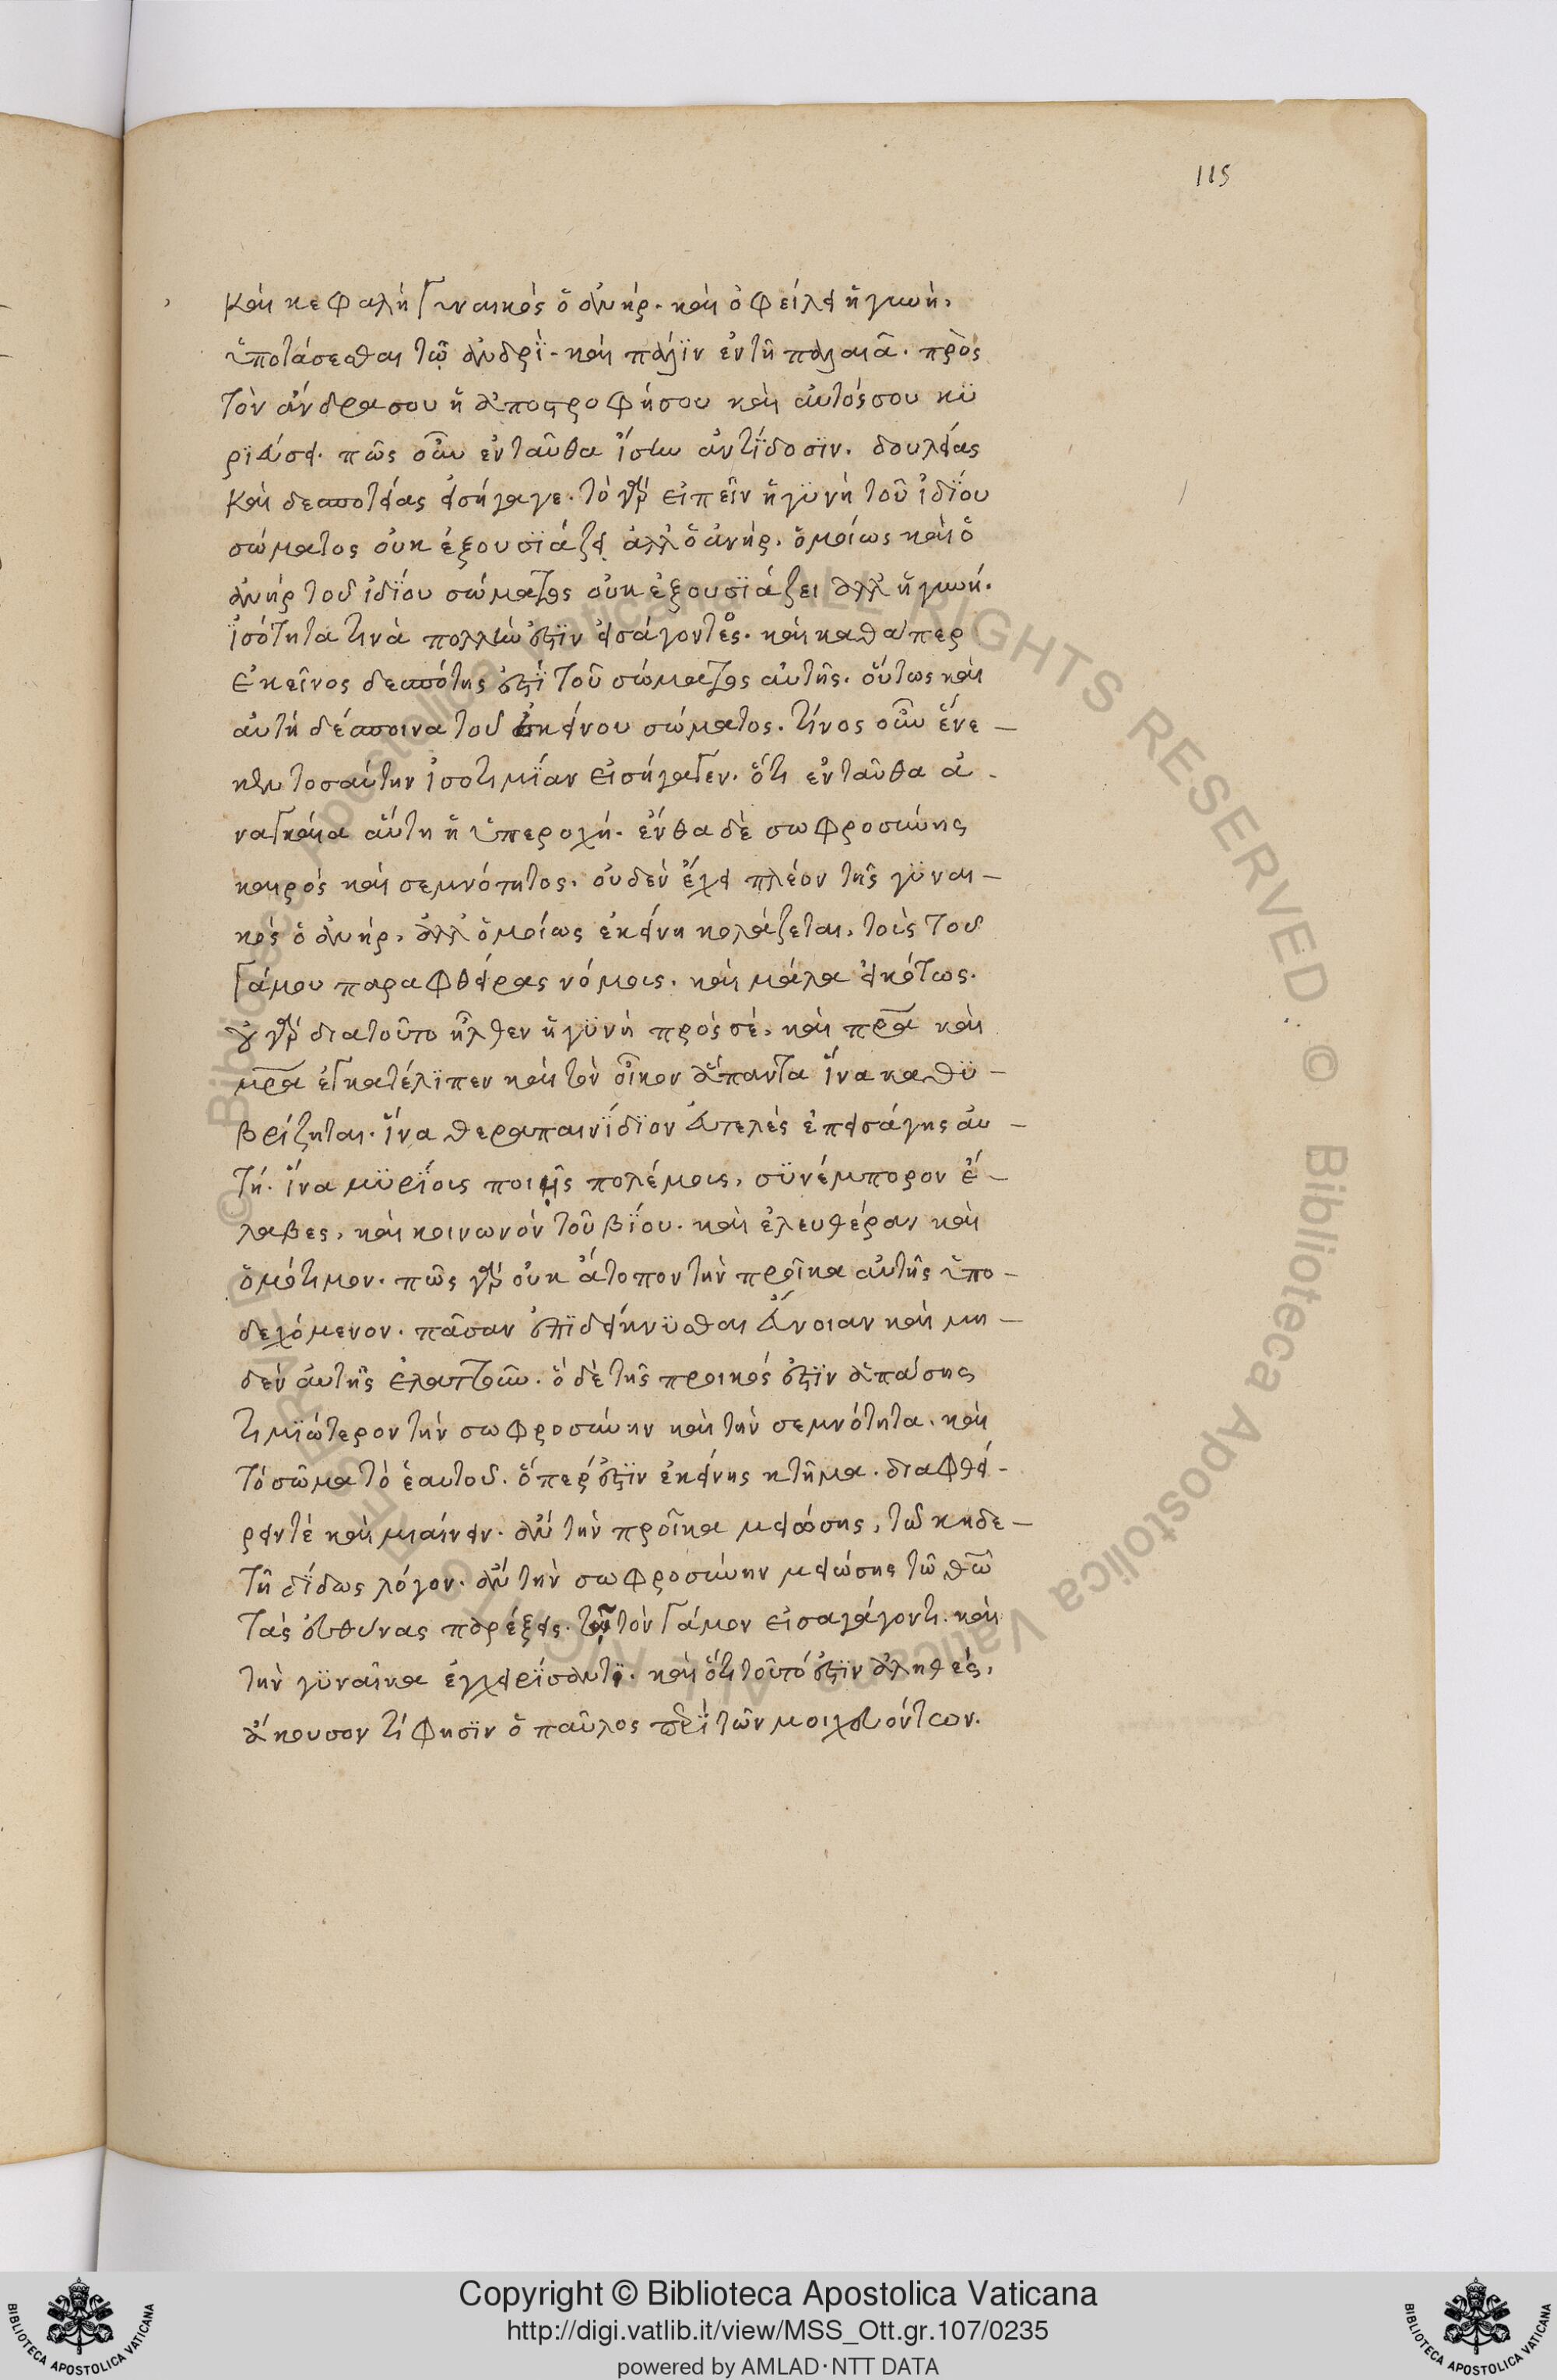 115
καὶ κεφαλὴ γυναικὸς ὁ ἀνήρ. καὶ ὀφείλει ἡ γυνὴ,
ὑποτάσεσθαι τῷ ἀνδρΐ. καὶ πάλϊν ἐν τῆ παλαιᾶ. πρὸς
τὸν ἄνδρα σου ἡ ἀποστροφή σου καὶ αὐτός σου κϋ
ρϊεύσει. πῶς οὖν ἐνταῦθα ἴσην ἀντίδοσϊν. δουλείας
καὶ δεσποτείας εἰσήγαγε. τὸ γὰρ εἰπεῖν ἡ γϋνὴ τοῦ ἰδΐου
σώματος οὐκ ἐξουσϊάζει ἀλλ' ὁ ἀνήρ. ὁμοίως καὶ ὁ
ἀνὴρ τοῦ ἰδΐου σώματος οὐκ ἐξουσϊάζει ἀλλ' ἡ γυνή.
ἰσότητα τινὰ πολλὴν ἐστὶν εἰσάγοντος. καὶ καθάπερ
ἐκεῖνος δεσπότης ἐστΐ τοῦ σώματος αὐτῆς. οὕτως καὶ
αὐτὴ δέσποινα τοῦ ἐκείνου σώματος. τίνος οὖν ἕνε –
κεν τοσαύτην ἰσοτιμΐαν εἰσήγαγεν. ὅτι ἐνταῦθα ἀ -
ναγκαία αὕτη ἡ ὑπεροχή. ἔνθα δὲ σωφροσύνης
καιρὸς καὶ σεμνότητος. οὐδὲν ἔχει πλέον τῆς γϋναι –
κὸς ὁ ἀνήρ, ἀλλ' ὁμοίως ἐκείνη κολάζεται, τοὺς τοῦ
γάμου παραφθείρας νόμοις. καὶ μάλα εἰκότως.
οὐ γὰρ διατοῦτο ἦλθεν ἡ γϋνὴ πρός σέ, καὶ πρα καὶ
μρα ἐγκατέλϊπεν καὶ τὸν οἶκον ἅπαντα ἵνα καθϋ –
βρίζηται. ἵνα θεραπαινΐδϊον εὐτελὲς ἐπεισάγης αὐ –
τή. ἵνα μϋρΐοις ποιῆς πολέμοις, σϋνέμπορον ἔ –
λαβες, καὶ κοινωνὸν τοῦ βΐου. καὶ ἐλευθέραν καὶ
ὁμότιμον. πῶς γὰρ οὐκ ἄτοπον τὴν προῖκα αὐτῆς ὑπο –
δεχόμενον. πᾶσαν ἐπϊδείκνϋσθαι εὔνοιαν καὶ μη –
δὲν αὐτῆς ἐλαττοῦν. ὃ δὲ τῆς προικός ἐστϊν ἁπάσης
τιμϊώτερον τὴν σωφροσύνην καὶ τὴν σεμνότητα. καὶ
τὸ σῶμα τὸ ἑαυτοῦ. ὅπερ ἐστϊν ἐκείνης κτῆμα. διαφθεί -
ρειν τὲ καὶ μιαίνειν. ἂν τὴν προῖκα μειώσης, τῶ κηδε –
τῆ δΐδως λόγον. ἂν τὴν σωφροσύνην μειώσης τῶ θῶ
τὰς εὐθύνας παρέξεις. τῷ τὸν γάμον εἰσαγάγοντι. καὶ
τὴν γϋναῖκα ἐγχειρΐσαντϊ. καὶ ὅτι τοῦτό ἐστϊν ἀληθές,
ἄκουσον τί φησϊν ὁ παῦλος περΐ τῶν μοιχευόντων.
© Biblioteca Apostolica Vaticana ALL RIGHTS RESERVED © Biblioteca Apostolica Vaticana
BIBLIOTECA APOSTOLICA VATICANA
Copyright © Biblioteca Apostolica Vaticana
http://digi.vatlib.it/view/MSS_Ott.gr.107/0235
powered by AMLAD·NTT DATA
BIBLIOTECA APOSTOLICA VATICANA